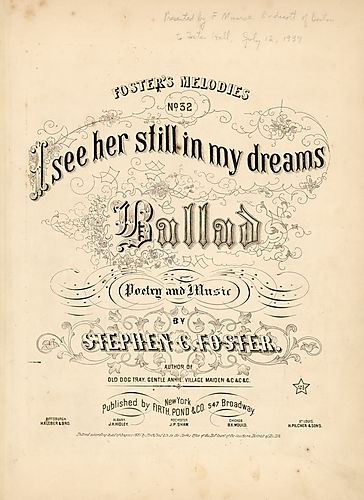 Presented by F. Munroe Endicott of Boston
to Foster Hall, July 12, 1934
FOSTER'S MELODIES
No 32
I see her still in my dreams
Ballad
(Poetry and Music)
BY
STEPHEN C. FOSTER.
AUTHOR OF
OLD DOG TRAY, GENTLE ANNIE, VILLAGE MAIDEN &C &C &C.
New York
Published by FIRTH, POND & CO. 547 Broadway
PITTSBURGH ALBANY, ROCHESTER CHICAGO ST LOUIS
H. KLEBER & BRO. J.H. HIDLEY. J.P. SHAW. H. PILCHER & SONS.